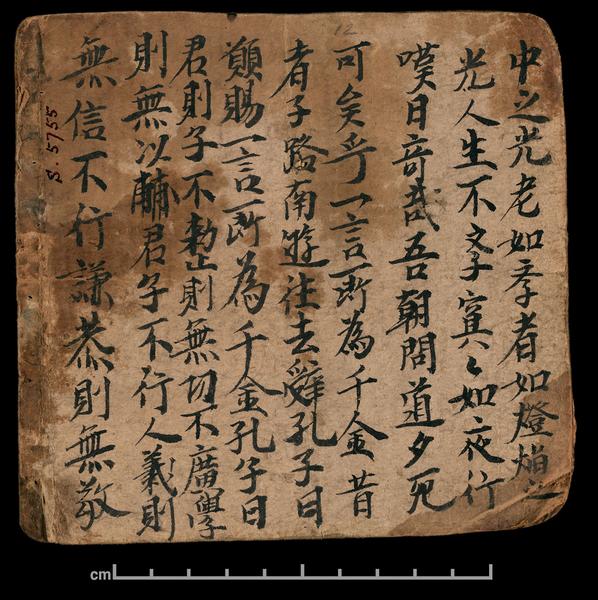 中之光老如斈者如燈燭之
光人生不斈冥々如夜行
嘆曰奇哉吾朝問道夕死
可矣乎一言所為千金昔
者子路南遊往去辞孔子曰
願賜一言所為千金孔子曰
君則子不勑則無切不廣學
則無以輔君子不行人義則
無信不行謙恭則無敬
12
S.5755
cm